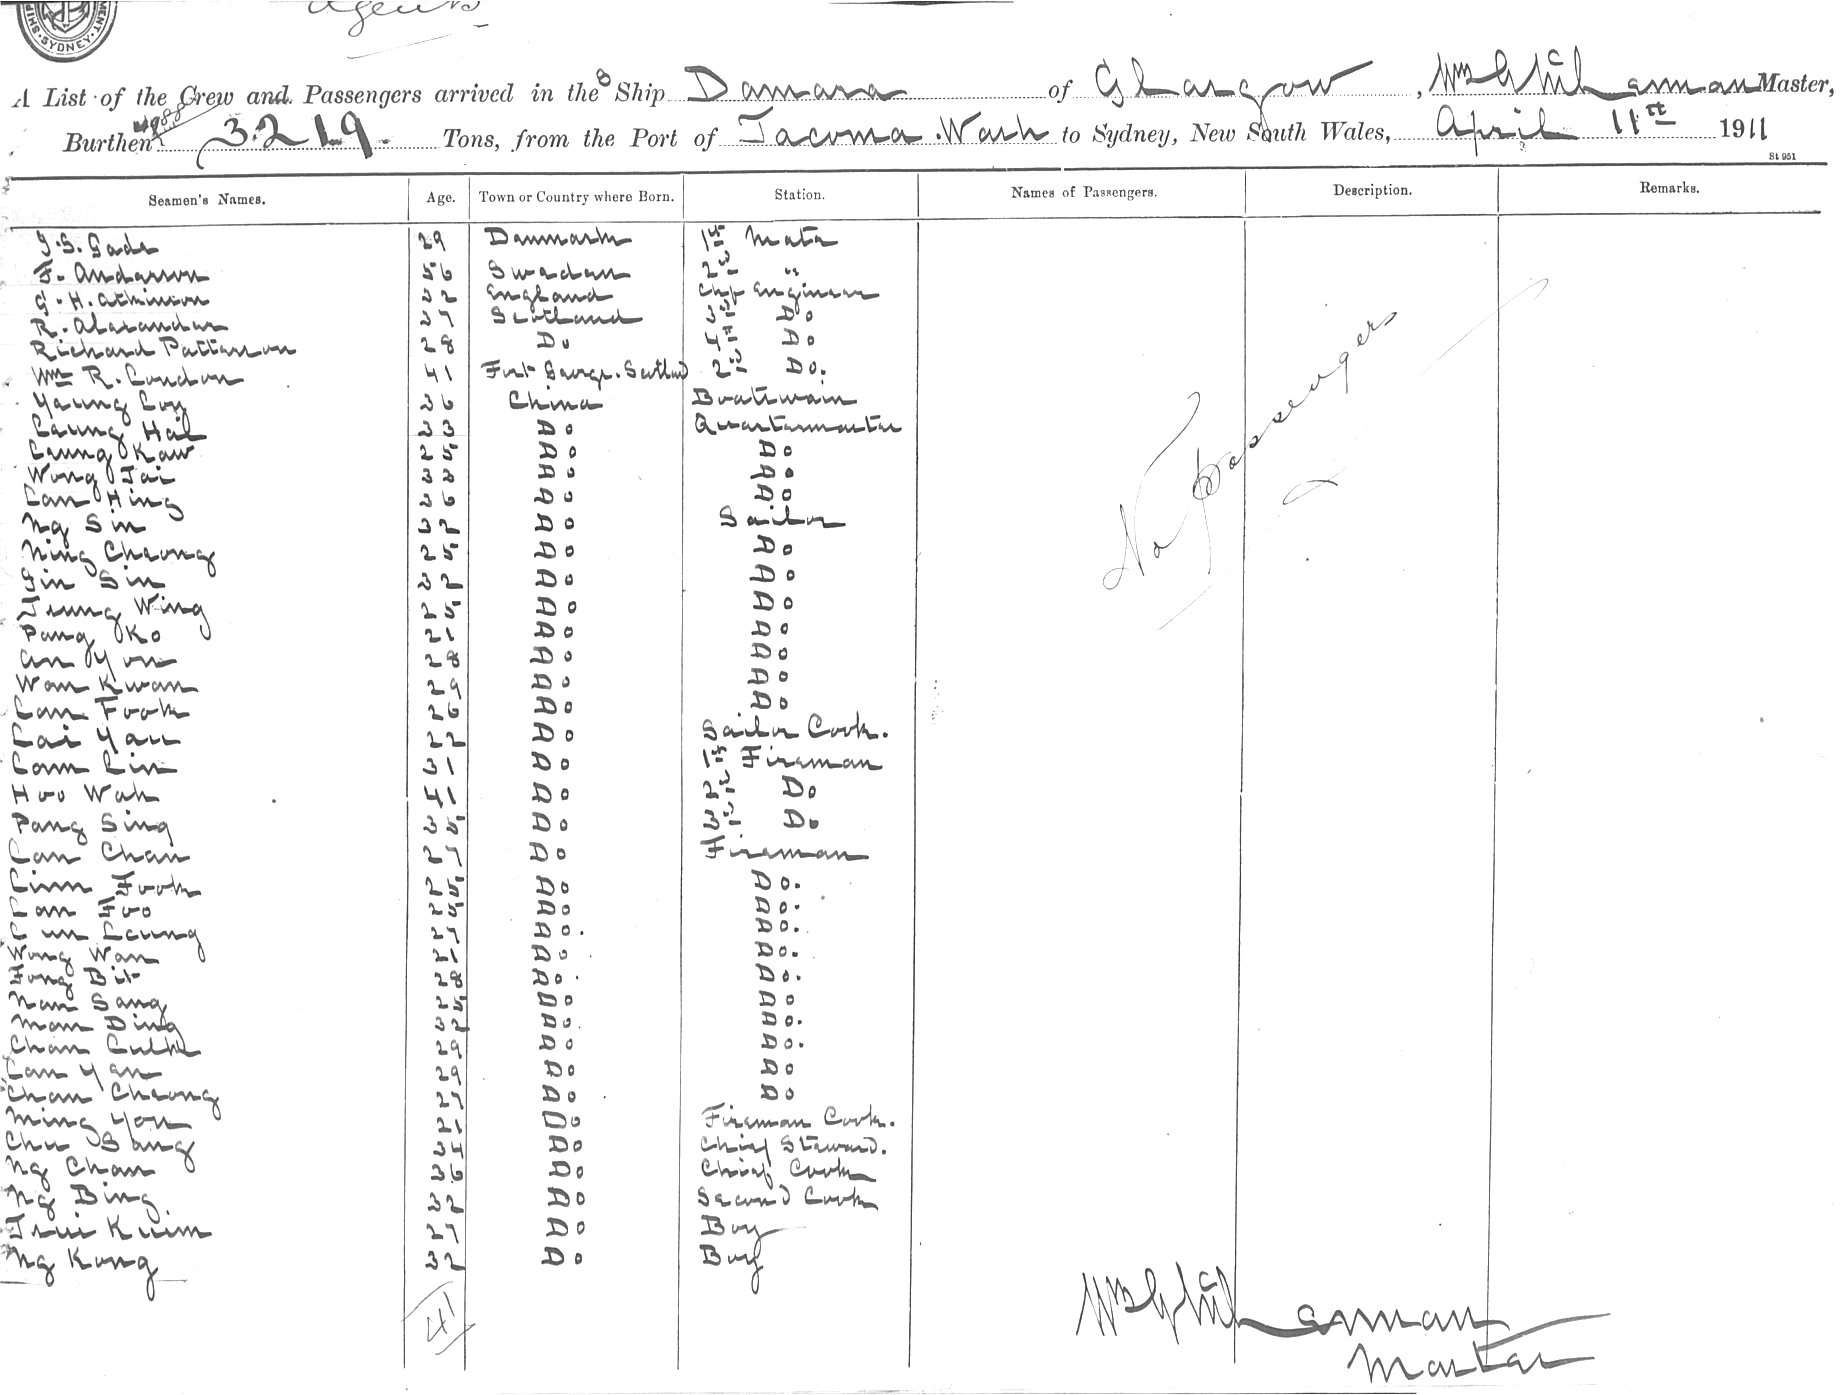 SYDNEY
Agents
A List of the Crew and Passengers arrived in the S Ship Damara of Glasgow, Wm G Master,
4988
Burthen 3219 Tons, from the Port of Tacoma Wash to Sydney, New South Wales, April 11th 1911
St 951
Seamen's Names. Age. Town or Country where Born. Station. Names of Passengers. Description. Remarks.
J. S. Gade 29 Denmark 1st Mate
F. Anderson 56 Sweden 2nd "
G. H. Atkinson 32 England Chf Engineer
R. Alexander 37 Scotland 3rd Do
Richard Patterson 28 Do 4th Do
Wm R. Condon 41 Fort George. Scotland 2nd Do.
Yaung Coy 36 China Boatswain
Leung Hai 33 Do Quartermaster
Leung Kaw 25 Do Do
Wong Tai 33 Do Do
Lan Hing 36 Do Do
Ng Sin 32 Do Sailor
Ning Cheong 25 Do Do
Gin Sin 32 Do Do
Tsung Wing 25 Do Do
Pang Ko 21 Do Do
An You 28 Do Do
Wan Kwan 29 Do Do
Lan Fook 26 Do Do
Lai Yau 22 Do Sailor Cook.
Lam Lin 31 Do 1st Fireman
Hoo Wah 41 Do 2nd Do
Pang Sing 35 Do 3rd Do
Lan Chan 27 Do Fireman
Linn Fook 25 Do Do.
Lan Foo 25 Do Do.
Lun Leung 27 Do. Do.
Wong Wan 21 Do Do.
Fong Bit 28 Do. Do.
Nan Sang 25 Do Do
Man Ding 32 Do. Do.
Chan Luk 29 Do Do.
Lan Yan 29 Do Do
Chan Cheong 27 Do Do
Ming You 21 Do Fireman Cook.
Chu Sang 34 Do Chief Steward.
Ng Chan 36 Do Chief Cook
Ng Bing 32 Do Second Cook
Tsui Kuim 27 Do Boy
Ng Kong 32 Do Boy
No Passengers
41
Wm G
Master